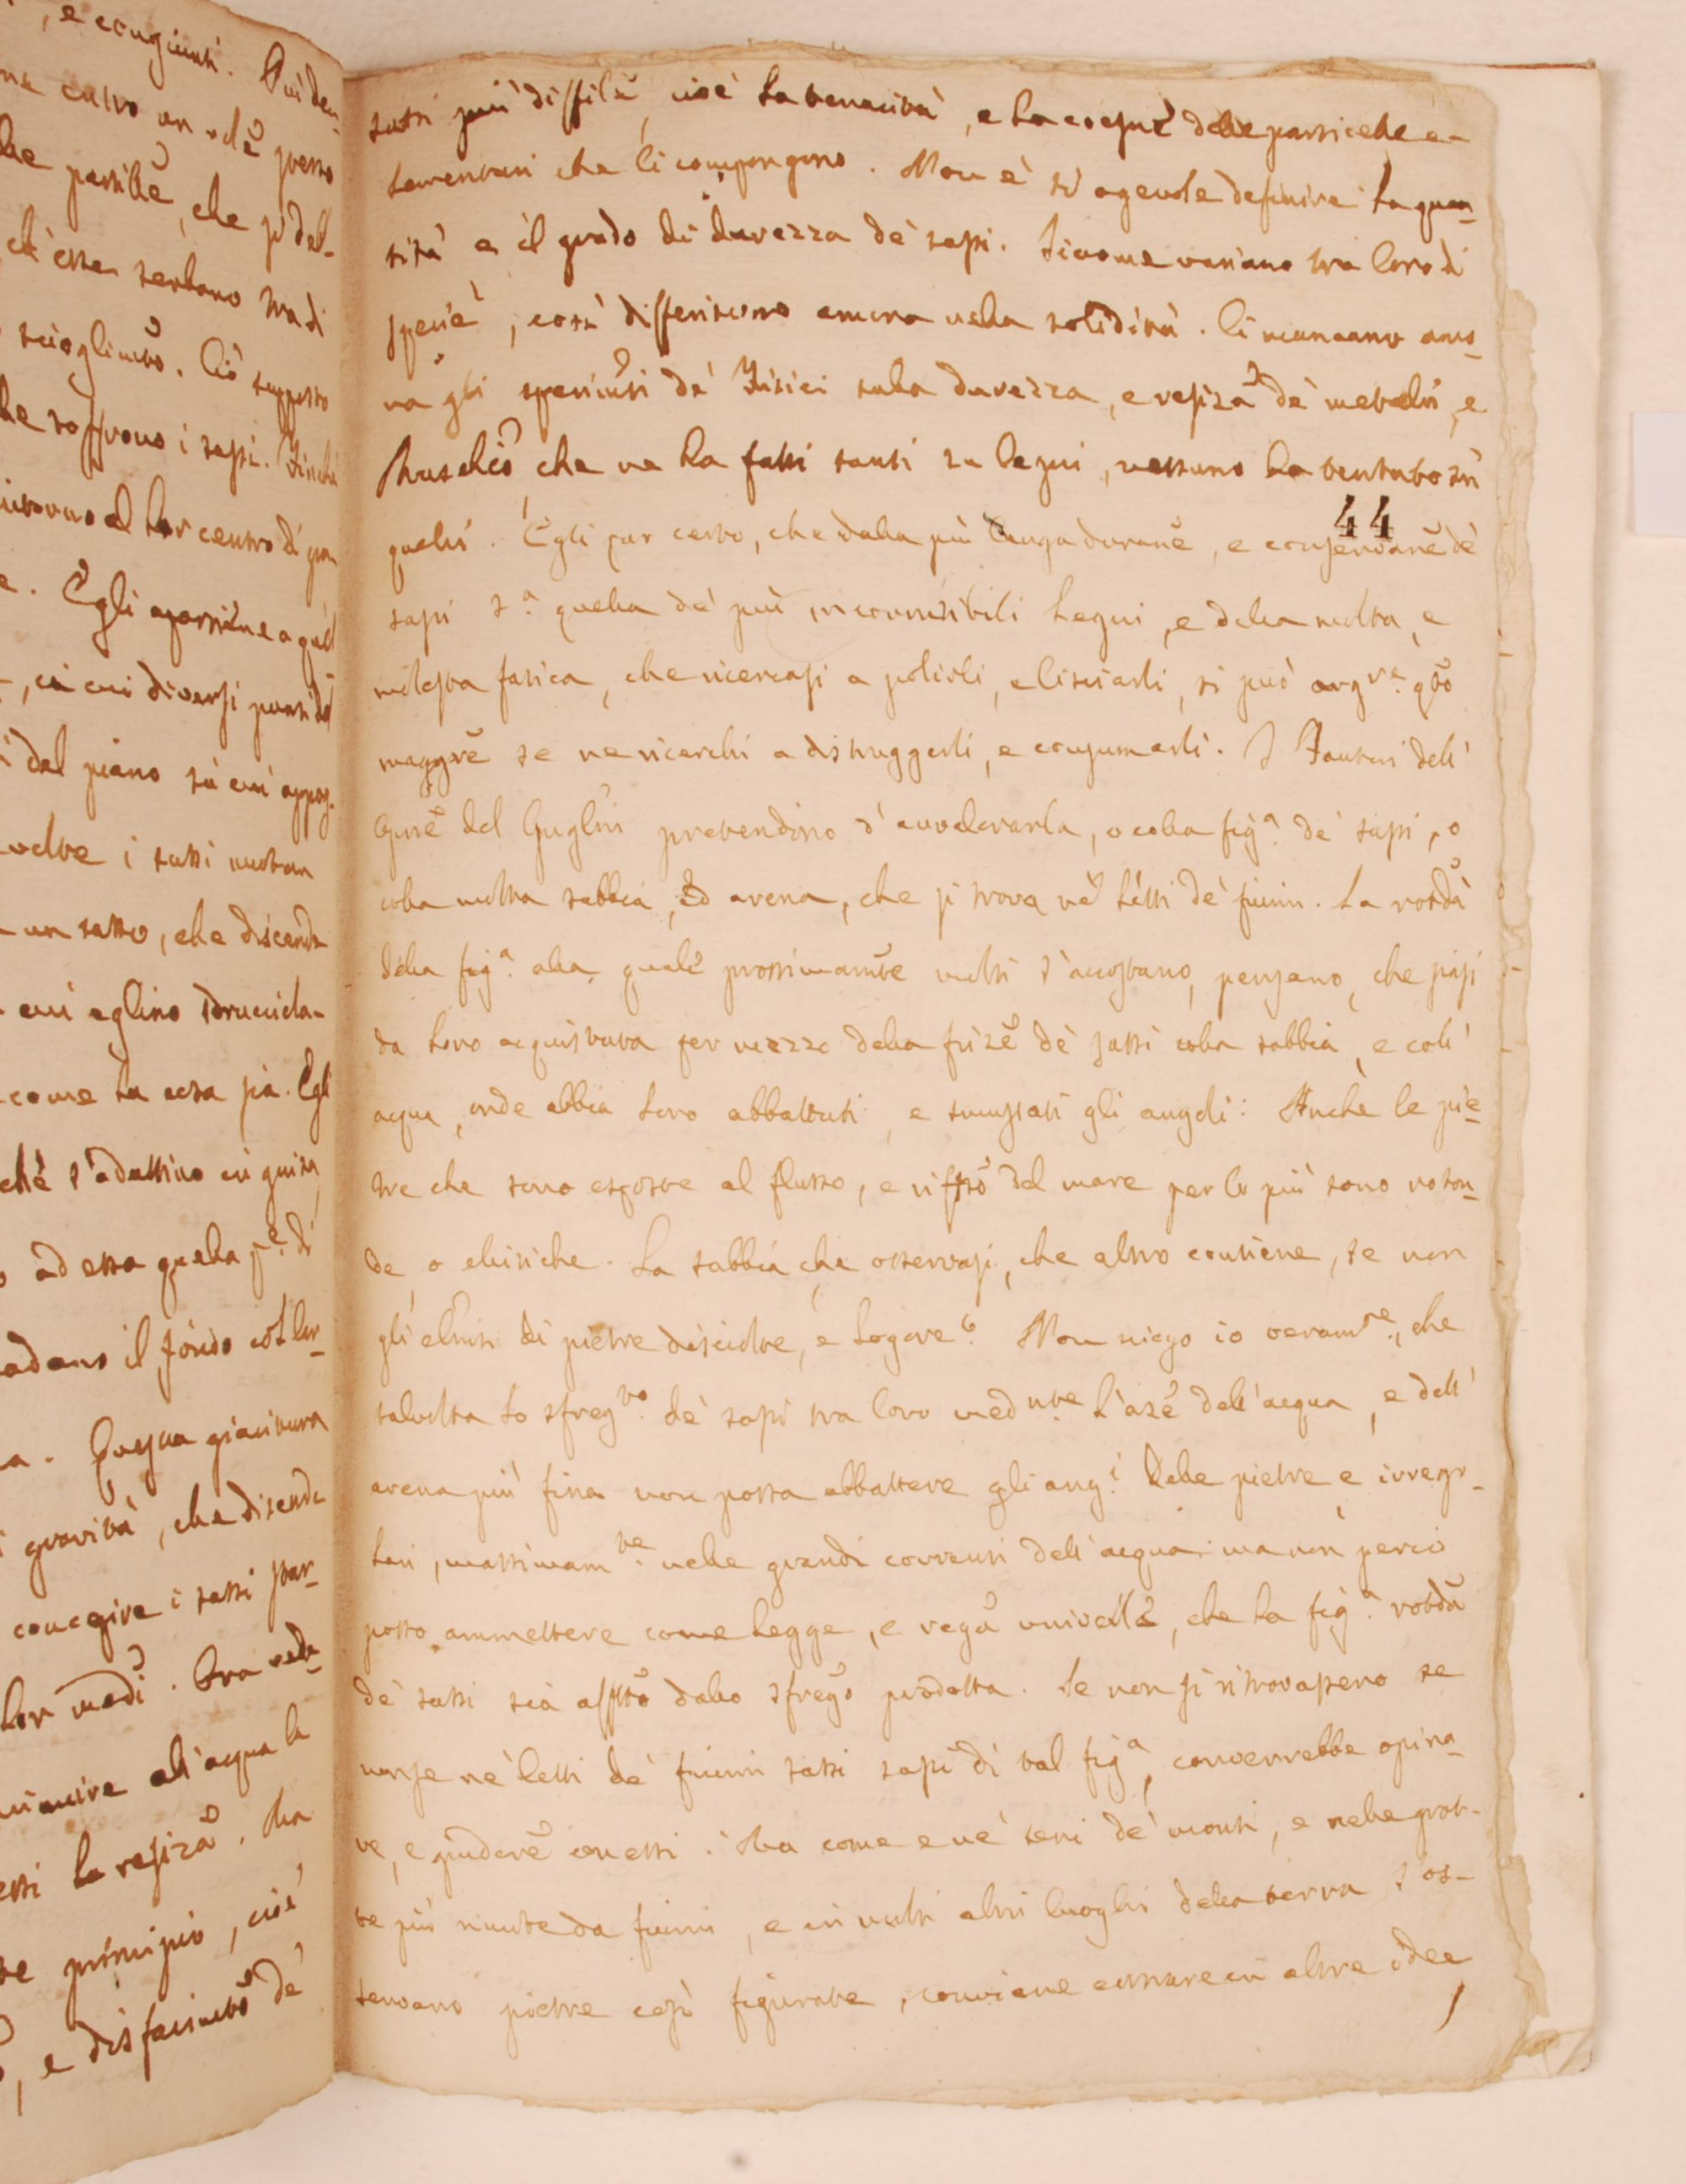 , e congiunti. Quì den-
altro un
particelle, che
ch'esse serbano tra di
scioglimto. Ciò supposto
che soffrono i sassi. Finchè
intorno al lor centro di gra
e. Egli appartiene a
, in cui diversi punti del
dal piano sù cui appog-
volte i sassi nuotan
un sasso, che discenda
cui eglino sdrucciola-
come la cosa sia. Egli
chè s'adattino in guisa
ad essa quella pe. di
il fondo col lor
a. Questa giacitura
gravità, che discende
concepire i sassi par-
lor medi. Ora vede-
all'acqua la
essi la resiza. Ma
principio, cioè
, e disfacimto de'
sassi più diffile, cioè la tenacità, e la coesne delle particelle e-
lementari che li compongono. Non è sì agevole definire la quan-
tità e il grado di durezza de' sassi. Siccome variano tra loro di
specie, così differiscono ancora nella solidità. Ci mancano anco-
ra gli sperimti de' Fisici sulla durezza, e resiza de' metalli, e
Muscheo che ne ha fatti tanti su legni, nessuno ha tentato sù
44
quelli. Egli par certo, che dalla più lunga durane, e conservane de'
sassi sa. quella de' più incorruttibili legni, e della molta, e
molesta fatica, che ricercasi a polirli, e lisciarli, si può argre. qto
maggre se ne ricerchi a distruggerli, e consumarli. I Fautori dell'
Opine del Guglini pretendono d'avvalorarla, o colla figa. de' sassi, o
colla molta sabbia, ed arena, che si trova ne' letti de' fiumi. La rotdà
della figa. alla quale prossimamte molti s'accostano, pensano, che siasi
da loro acquistata per mezzo della frizne de' sassi colla sabbia, e coll'
acqua, onde abbia loro abbattuti, e smussati gli angoli: Anche le pie-
tre che sono esposte al flusso, e riflsso del mare per lo più sono roton-
de, o elittiche. La sabbia che osservasi, che altro contiene, se non
gli elmti di pietre disciolte, e logore? Non niego io veramte., che
talvolta lo sfregto. de' sassi tra loro mednte. l'aze dell'acqua, e dell'
arena più fina non possa abbattere gli angi. delle pietre e irrego-
lari, massimamte. nelle grandi correnti dell'acqua: ma non perciò
posso ammettere come legge, e rega univelle, che la figa. rotda
de' sassi sia affto dallo sfrego prodotta. Se non si ritrovassero se
nonse ne' letti de' fiumi sassi di tal figa, converrebbe opina-
re, e giudcre con essi. Ma come e ne' seni de' monti, e nelle grot-
te più rimote da fiumi, e in molti altri luoghi della terra s'os-
servano pietre così figurate, conviene entrare in altre idee